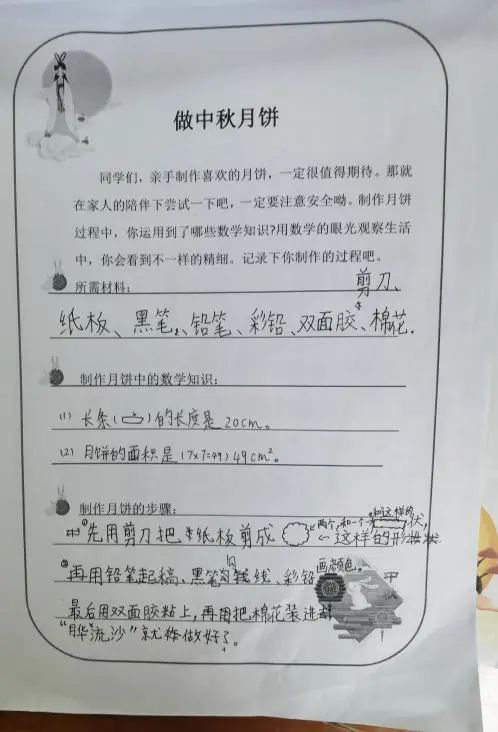 做中秋月饼
同学们，亲手制作喜欢的月饼，一定很值得期待。那就
在家人的陪伴下尝试一下吧，一定要注意安全呦。制作月饼
过程中，你运用到了哪些数学知识?用数学的眼光观察生活
中，你会看到不一样的精细。记录下你制作的过程吧。
所需材料： 剪刀、
纸板、黑笔、铅笔、彩铅、双面胶、棉花.
制作月饼中的数学知识：
(1) 长条( )的长度是20cm。
(2) 月饼的面积是(7×7=49)49cm²。
制作月饼的步骤： 和这样的
①先用剪刀把纸板剪成 两个,和一个 状,
←这样的形状
②再用铅笔起稿、黑笔勾线、彩铅画颜色。
最后用双面胶粘上,再把棉花装进
“流沙”就做好了。